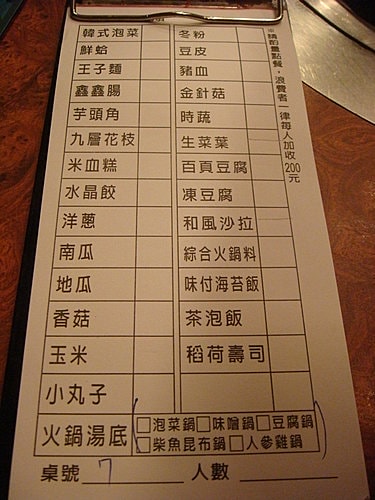 韓式泡菜 冬粉
鮮蛤 豆皮
王子麵 豬血
鑫鑫腸 金針菇
芋頭角 時蔬
九層花枝 生菜葉
米血糕 百頁豆腐
水晶餃 凍豆腐
洋蔥 和風沙拉
南瓜 綜合火鍋料
地瓜 味付海苔飯
香菇 茶泡飯
玉米 稻荷壽司
小丸子
火鍋湯底 □泡菜鍋□味噌鍋□豆腐鍋
□柴魚昆布鍋□人參雞鍋
桌號 7 人數
※請酌量點餐，浪費者一律每人加收200元